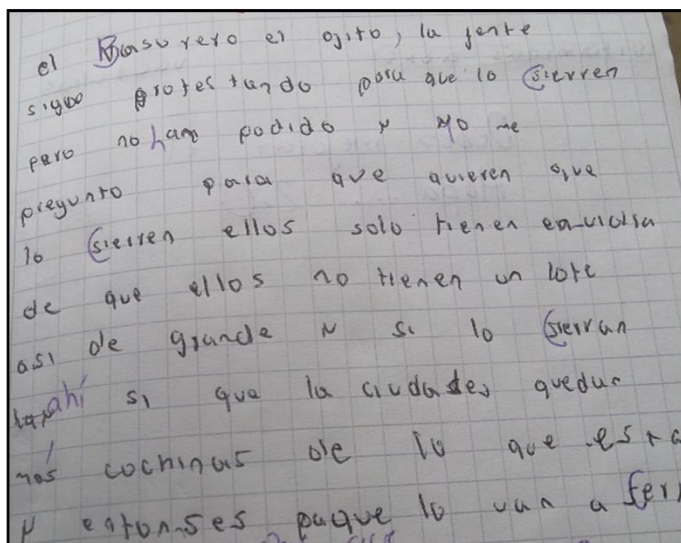 el Basurero el ogito, la jente
sigue protestando para que lo Cierren
pero no han podido y yo me
pregunto para que quieren que
lo Cierren ellos solo tienen envidia
de que ellos no tienen un lote
asi de grande y si lo Cierran
ahí si que la ciudades quedan
más cochinas de lo que esta
y entonses paque lo van a